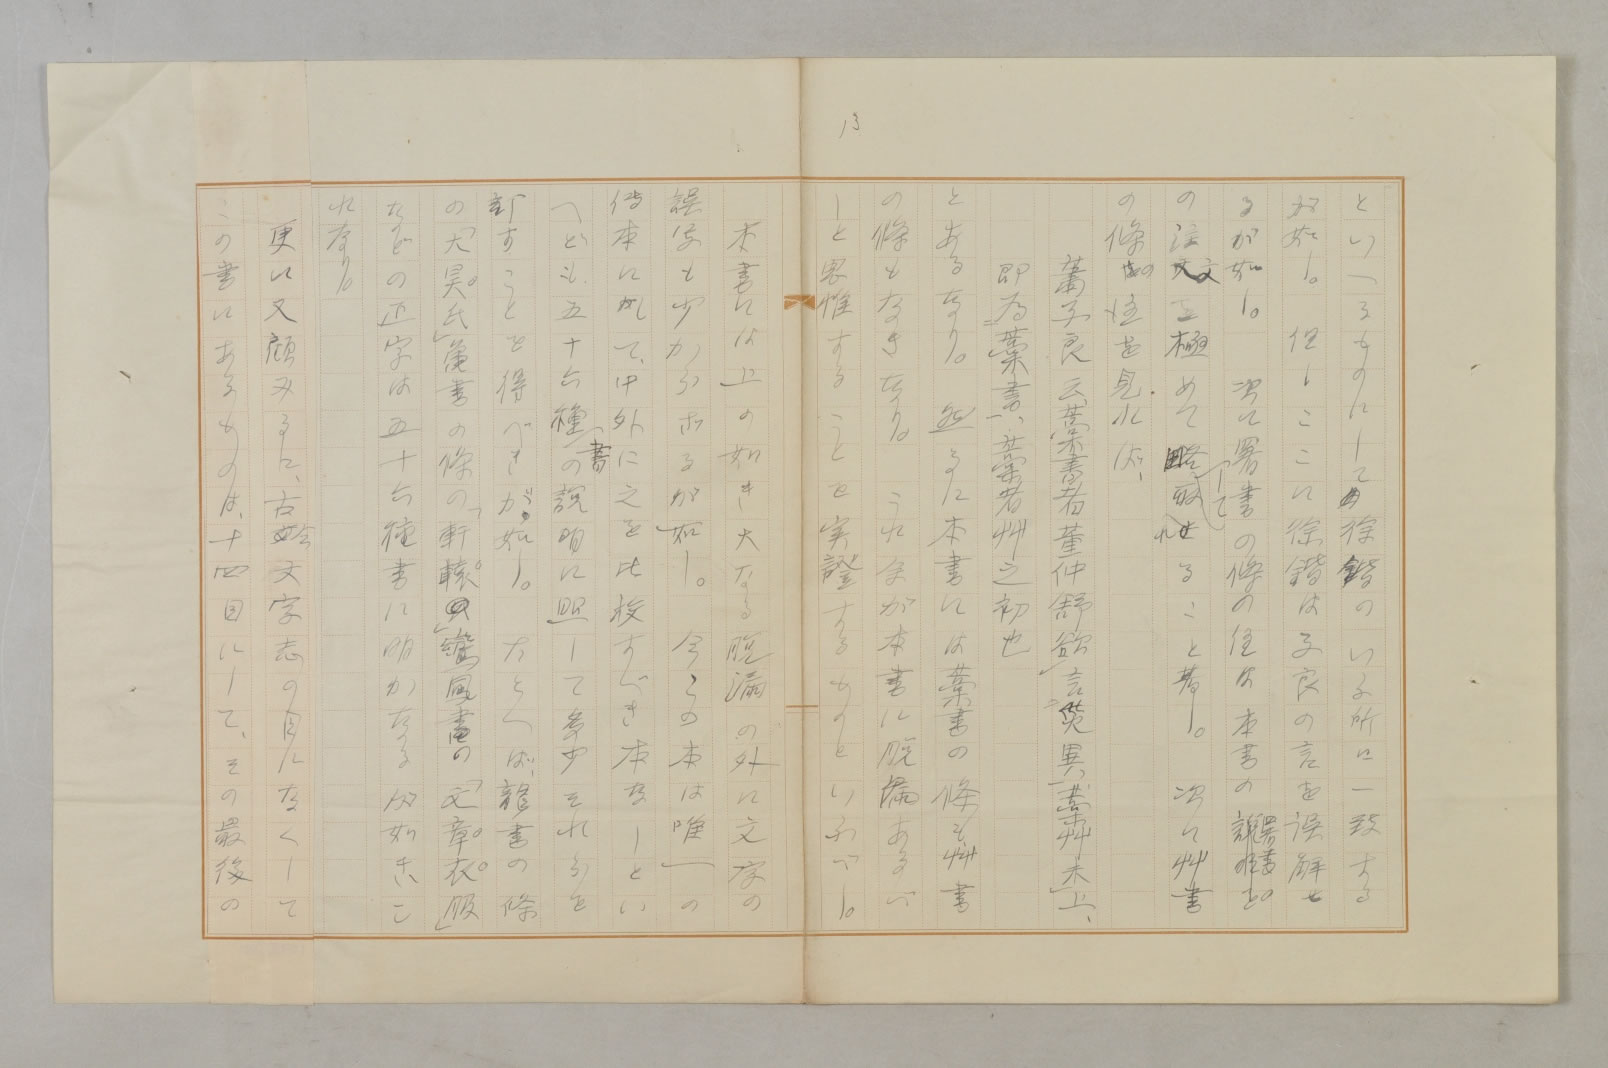 13
といへるものにして徐鍇のいふ所に一致する
が如し。但しここに徐鍇は子良の言を誤解せ
るが如し。次に署書の條の注は本書の署書の
の注文を極めて略して取れること著し。次に艸書
の條の注を見れば、
蕭子良云藁書者董仲舒欲言災異、藁艸未上、
即為藁書、藁者艸之初也
とあるなり。然るに本書には藁書の條も艸書
の條もなきなり。これ余が本書に脱漏あるべ
しと思惟することを実證するものといふべし。
本書には上の如き大なる脱漏の外に文字の
誤字も少からざるが如し。今この本は唯一の
傳本にして、中外に之を比校すべき本なしとい
へども、五十六種書の説明に照して多少それらを
訂すことを得べきが如し。たとへば、龍書の條
の「大昊氏」亀書の條の「軒轅」鸞鳳書の「文章衣服」
などの正字は五十六種書に明かなる如きこ
れなり。
更に又顧みるに、古今文字志の目になくして
この書にあるものは、十四目にして、その最後の